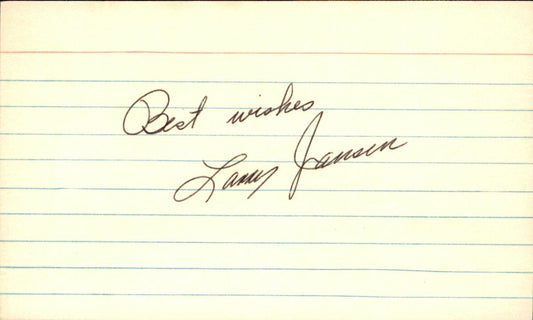 Best wishes
Larry Jansen